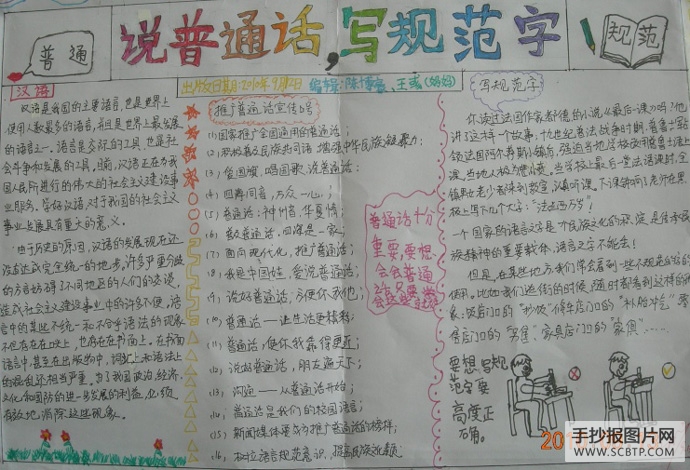 普通
说普通话,写规范字
规范
出版日期:2010年9月12日 编辑:陈博睿、王 (妈妈)
汉语
汉语是我国的主要语言,也是世界上
使用人数最多的语言,并且是世界上最发展
的语言之一。语言是交际的工具,也是社
会斗争和发展的工具。目前,汉语正在为我
国人民所进行的伟大的社会主义建设事
业服务。学好汉语,对于我国的社会主义
事业发展具有重大的意义。
由于历史的原因,汉语的发展现在还
没有达成完全统一的地步。许多严重分歧
的方言妨碍了不同地区的人们的交谈,
造成社会主义建设事业中的许多不便,语
言中的某些不统一和不合乎语法的现象
不但存在在口头上,也存在在书面上。在书面
语言中,甚至在出版物中,词汇上和语法上
的混乱还相当严重。为了我国政治、经济、
文化和国防的进一步发展的利益,必须
有效地消除这些现象。
推广普通话宣传口号
(1)国家推广全国通用的普通话;
(2)积极普及民族共同语 增强中华民族凝聚力;
(3)爱国旗,唱国歌,说普通话;
(4)四海同音,万众一心。;
(5)普通话:神州音,华夏情;
(6)普通话,四海是一家;
(7)面向现代化,推广普通话;
(8)我是中国娃,爱说普通话;
(9)说好普通话,方便你我他;
(10)普通话——让生活更精彩;
(11)普通话,使你我靠得更近;
(12)说好普通话,朋友遍天下;
(13)沟通——从普通话开始;
(14)普通话是我们的校园语言;
(15)新闻媒体要成为推广普通话的榜样;
(16)树立语言规范意识,提高民族文化素质.
普通话十分
重要,要想
会普通
写规范字
你读过法国作家都德的小说《最后一课》吗?他
讲了这样一个故事,十九世纪普法战争时期,普鲁士占
领法国阿尔萨斯小镇后,强迫当地学校改用普鲁士语上
课,当地人极为愤慨。当学校上最后一堂法语课时,全
镇男女老少都来到教室,认真听课。下课钟响了老师在黑
板上写下几个大字:“法兰西万岁”!
一个国家的语言文字是一个民族文化的积淀,是传承民
族精神的重要载体,语言文字不能丢!
但是,在某些地方我们常会看到一些不规范的字的
使用。比如我们逛街的时候,随时都看到这样的现
象:饭店门口的“抄饭”修车店门口的“补胎冲气”零
家具店门口的“家俱”……
要想写规
范字,要
高度正
确。
手抄报图片网
WWW.SCBTP.COM